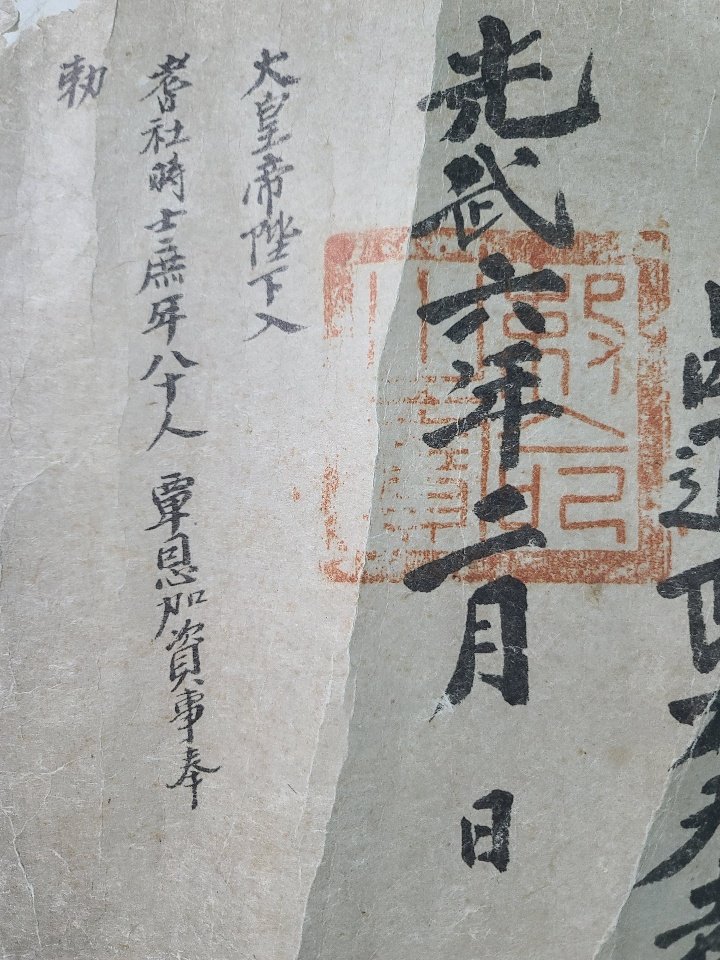 光武六年二月 日
大皇帝陛下入
耆社時士庶年八十人 覃恩加資事奉
勅